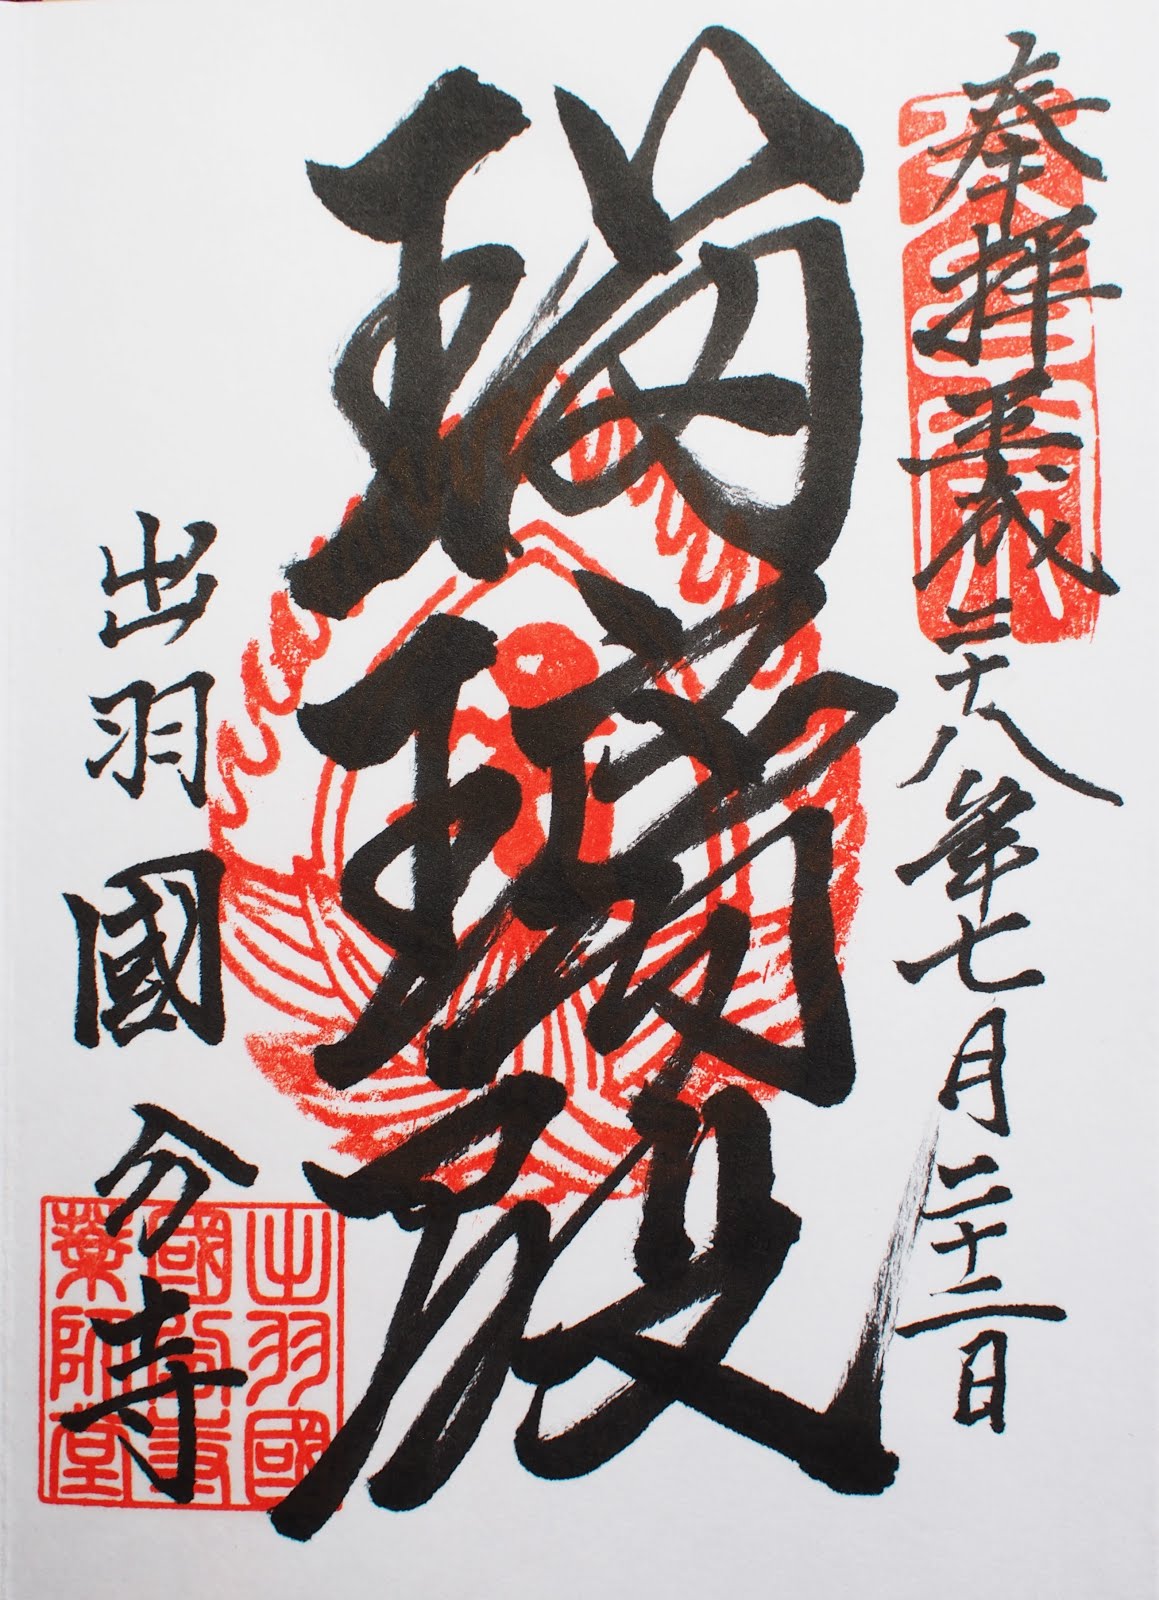 奉拝 平成二十八年七月二十二日
瑠璃殿
出羽國分寺
出羽國
國分寺
薬師堂